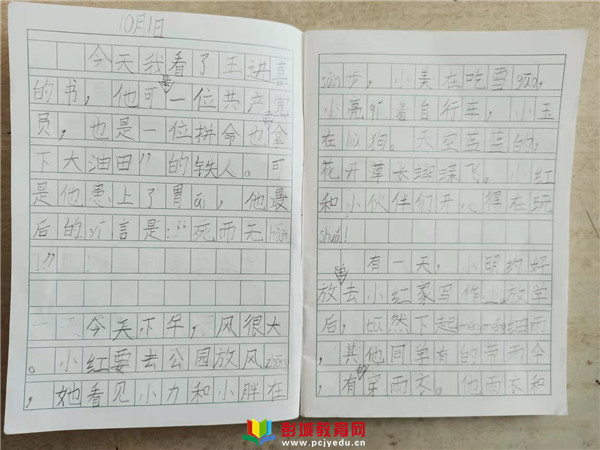 10月1日
今天我看了王进喜
的书，他可是一位共产党
员，也是一位拼命也拿
下大油田”的铁人。可
是他患上了胃ái，他最
后的yí言是:“死而无hàn
!”
今天下午，风很大
。小红要去公园放风
，她看见小力和小胖在
sàn步，小美在吃雪gāo，
小亮qí着自行车，小玉
在liù狗。天空蓝蓝的，
花开草长
和小伙伴们开心得在玩
shuǎ!
有一天，小明约好
放学去小红家写作业，放学
后，忽然下起
，其他同学有的带雨伞
，有穿雨衣。他雨衣和
彭城教育网
www.pcjyedu.cn